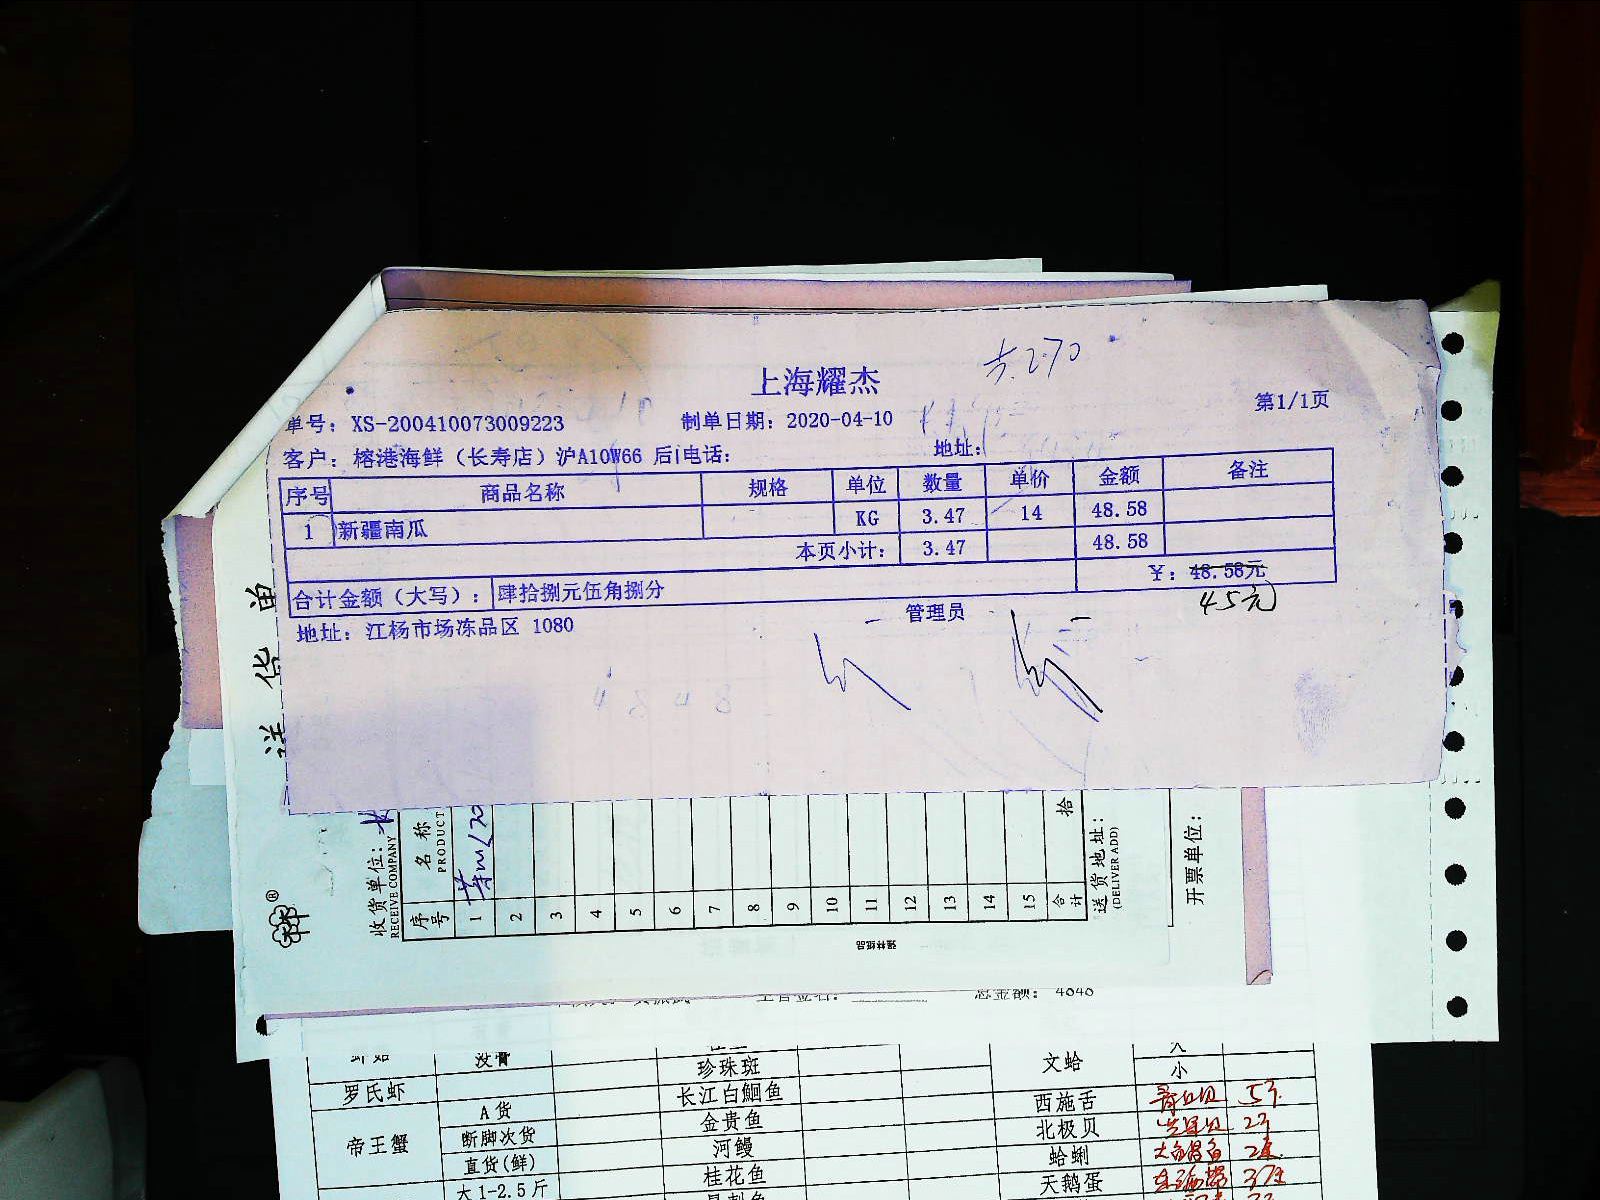 上海耀杰
第1/1页
单号：XS-200410073009223 制单日期：2020-04-10
客户：榕港海鲜（长寿店）沪A10W66 后 电话： 地址：
序号 商品名称 规格 单位 数量 单价 金额 备注
1 新疆南瓜 KG 3.47 14 48.58
本页小计： 3.47 48.58
合计金额（大写）： 肆拾捌元伍角捌分 ¥：48.58元
45元
地址：江杨市场冻品区 1080 管理员
送货单
收货单位：
RECEIVE COMPANY
序号 名称
PRODUCT
1
2
3
4
5
6
7
8
9
10
11
12
13
14
15
合计 拾
送货地址：
(DELIVER ADD)
开票单位：
强林纸品
总金额： 4848
没骨
珍珠斑 文蛤 大
小
罗氏虾 长江白鮰鱼 西施舌
帝王蟹 A货 金贵鱼 北极贝
断脚次货 河鳗 蛤蜊
直货(鲜) 桂花鱼 天鹅蛋
大1-2.5斤